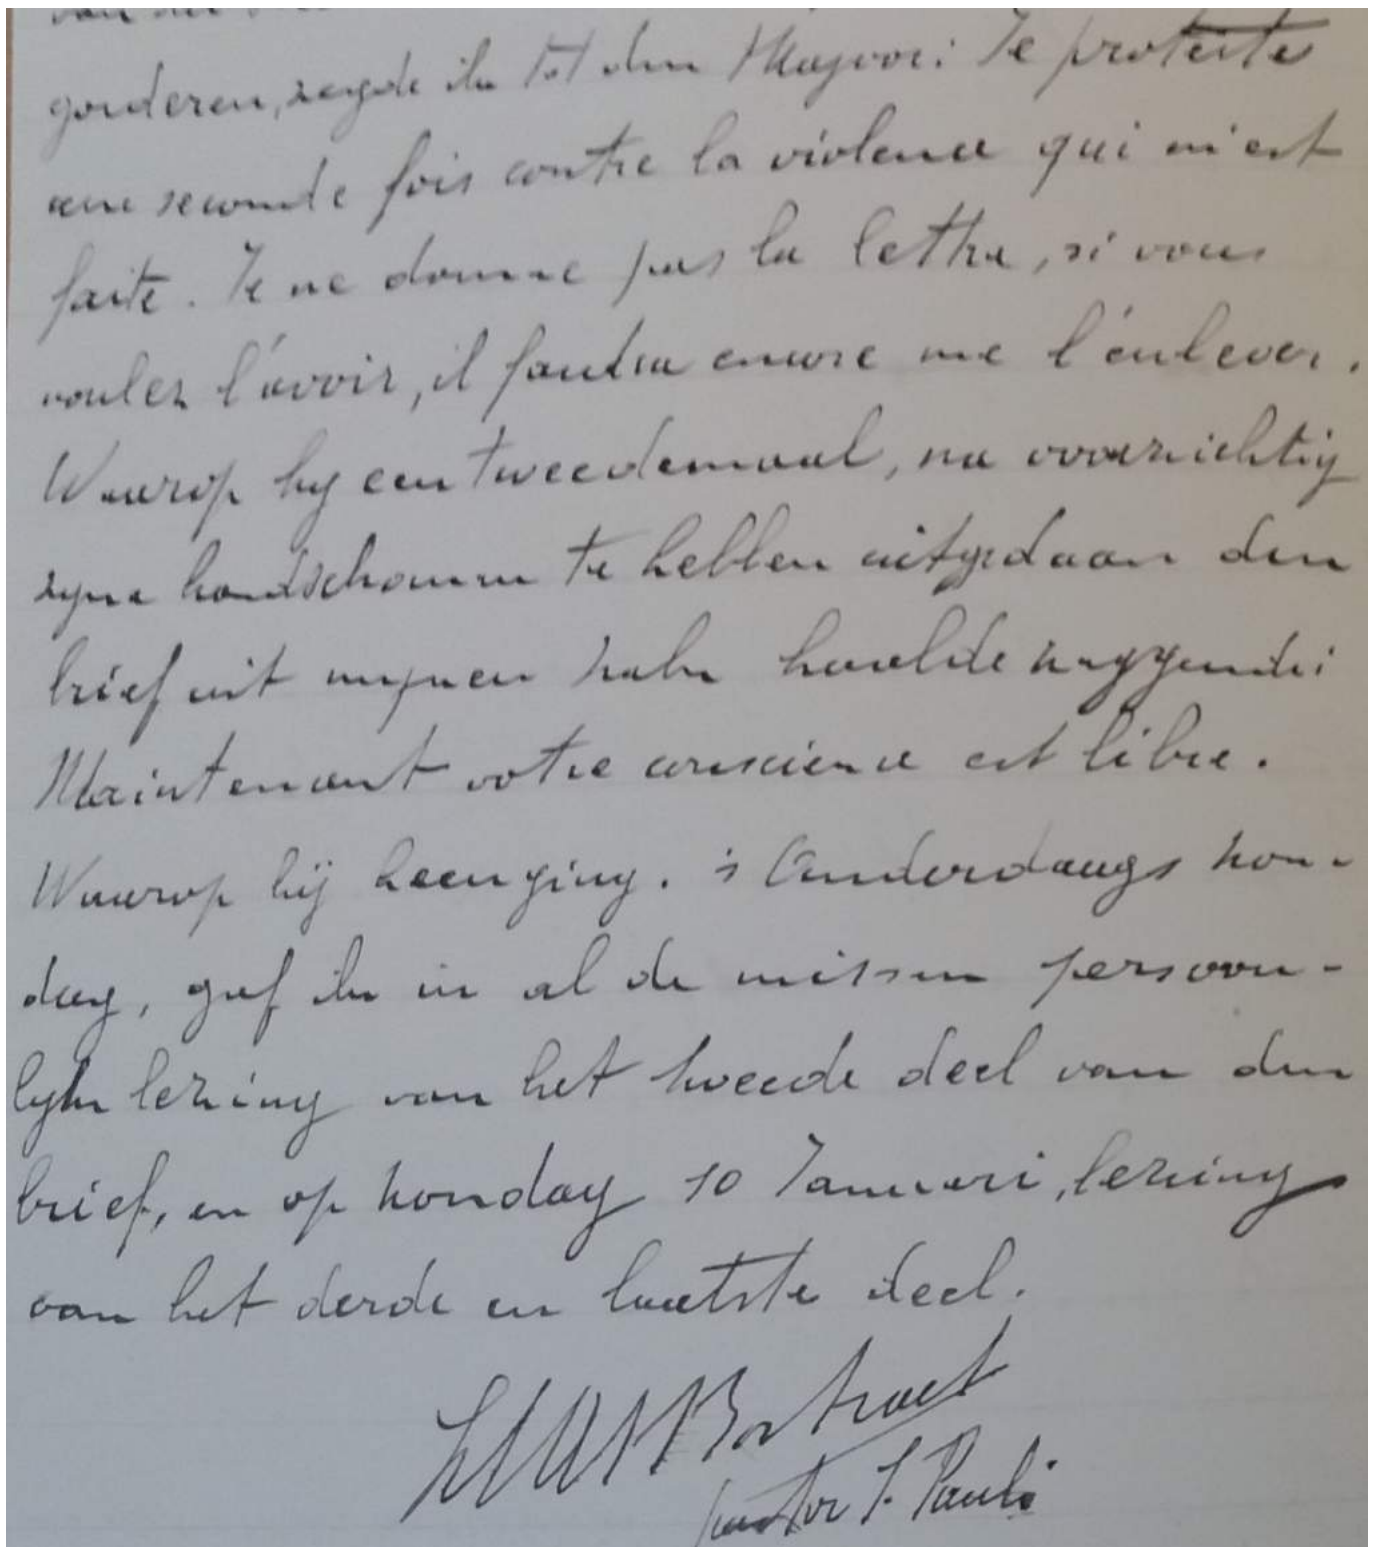 goederen, zegde ik tot den Majoor: Je proteste
une seconde fois contre la violence qui m'est
faite. Je ne donne pas la lettre, si vous
voulez l'avoir, il faudra encore me l'enlever.
Waarop hy een tweedemaal, na voorzichtig
zyne handschoenen te hebben uitgedaan den
brief uit mynen haalde zeggende:
Maintenant votre conscience est libre.
Waarop hij heenging. 's Anderdaags zon-
dag, gaf ik in al de missen persoon-
lyke lezing van het tweede deel van den
brief, en op zondag 10 Januari, lezing
van het derde en laatste deel.
pastor S. Pauli